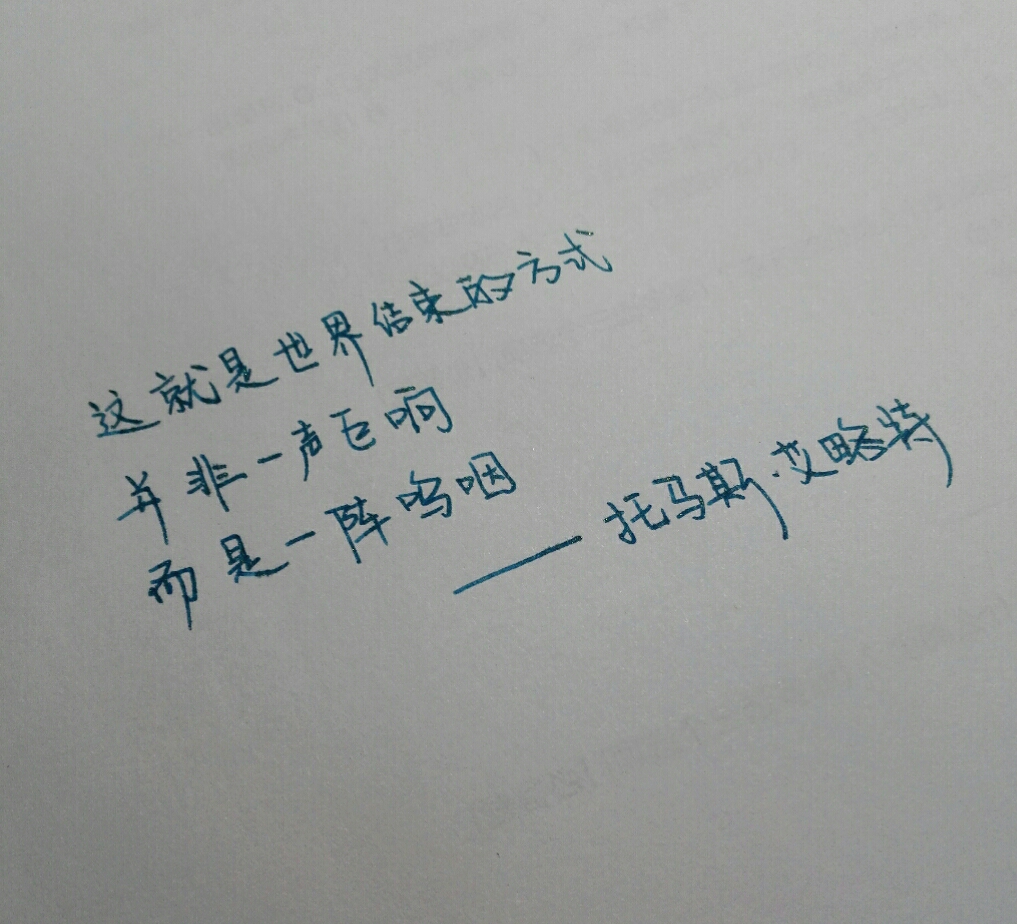 这就是世界结束的方式
并非一声巨响
而是一阵呜咽
——托马斯·艾略特